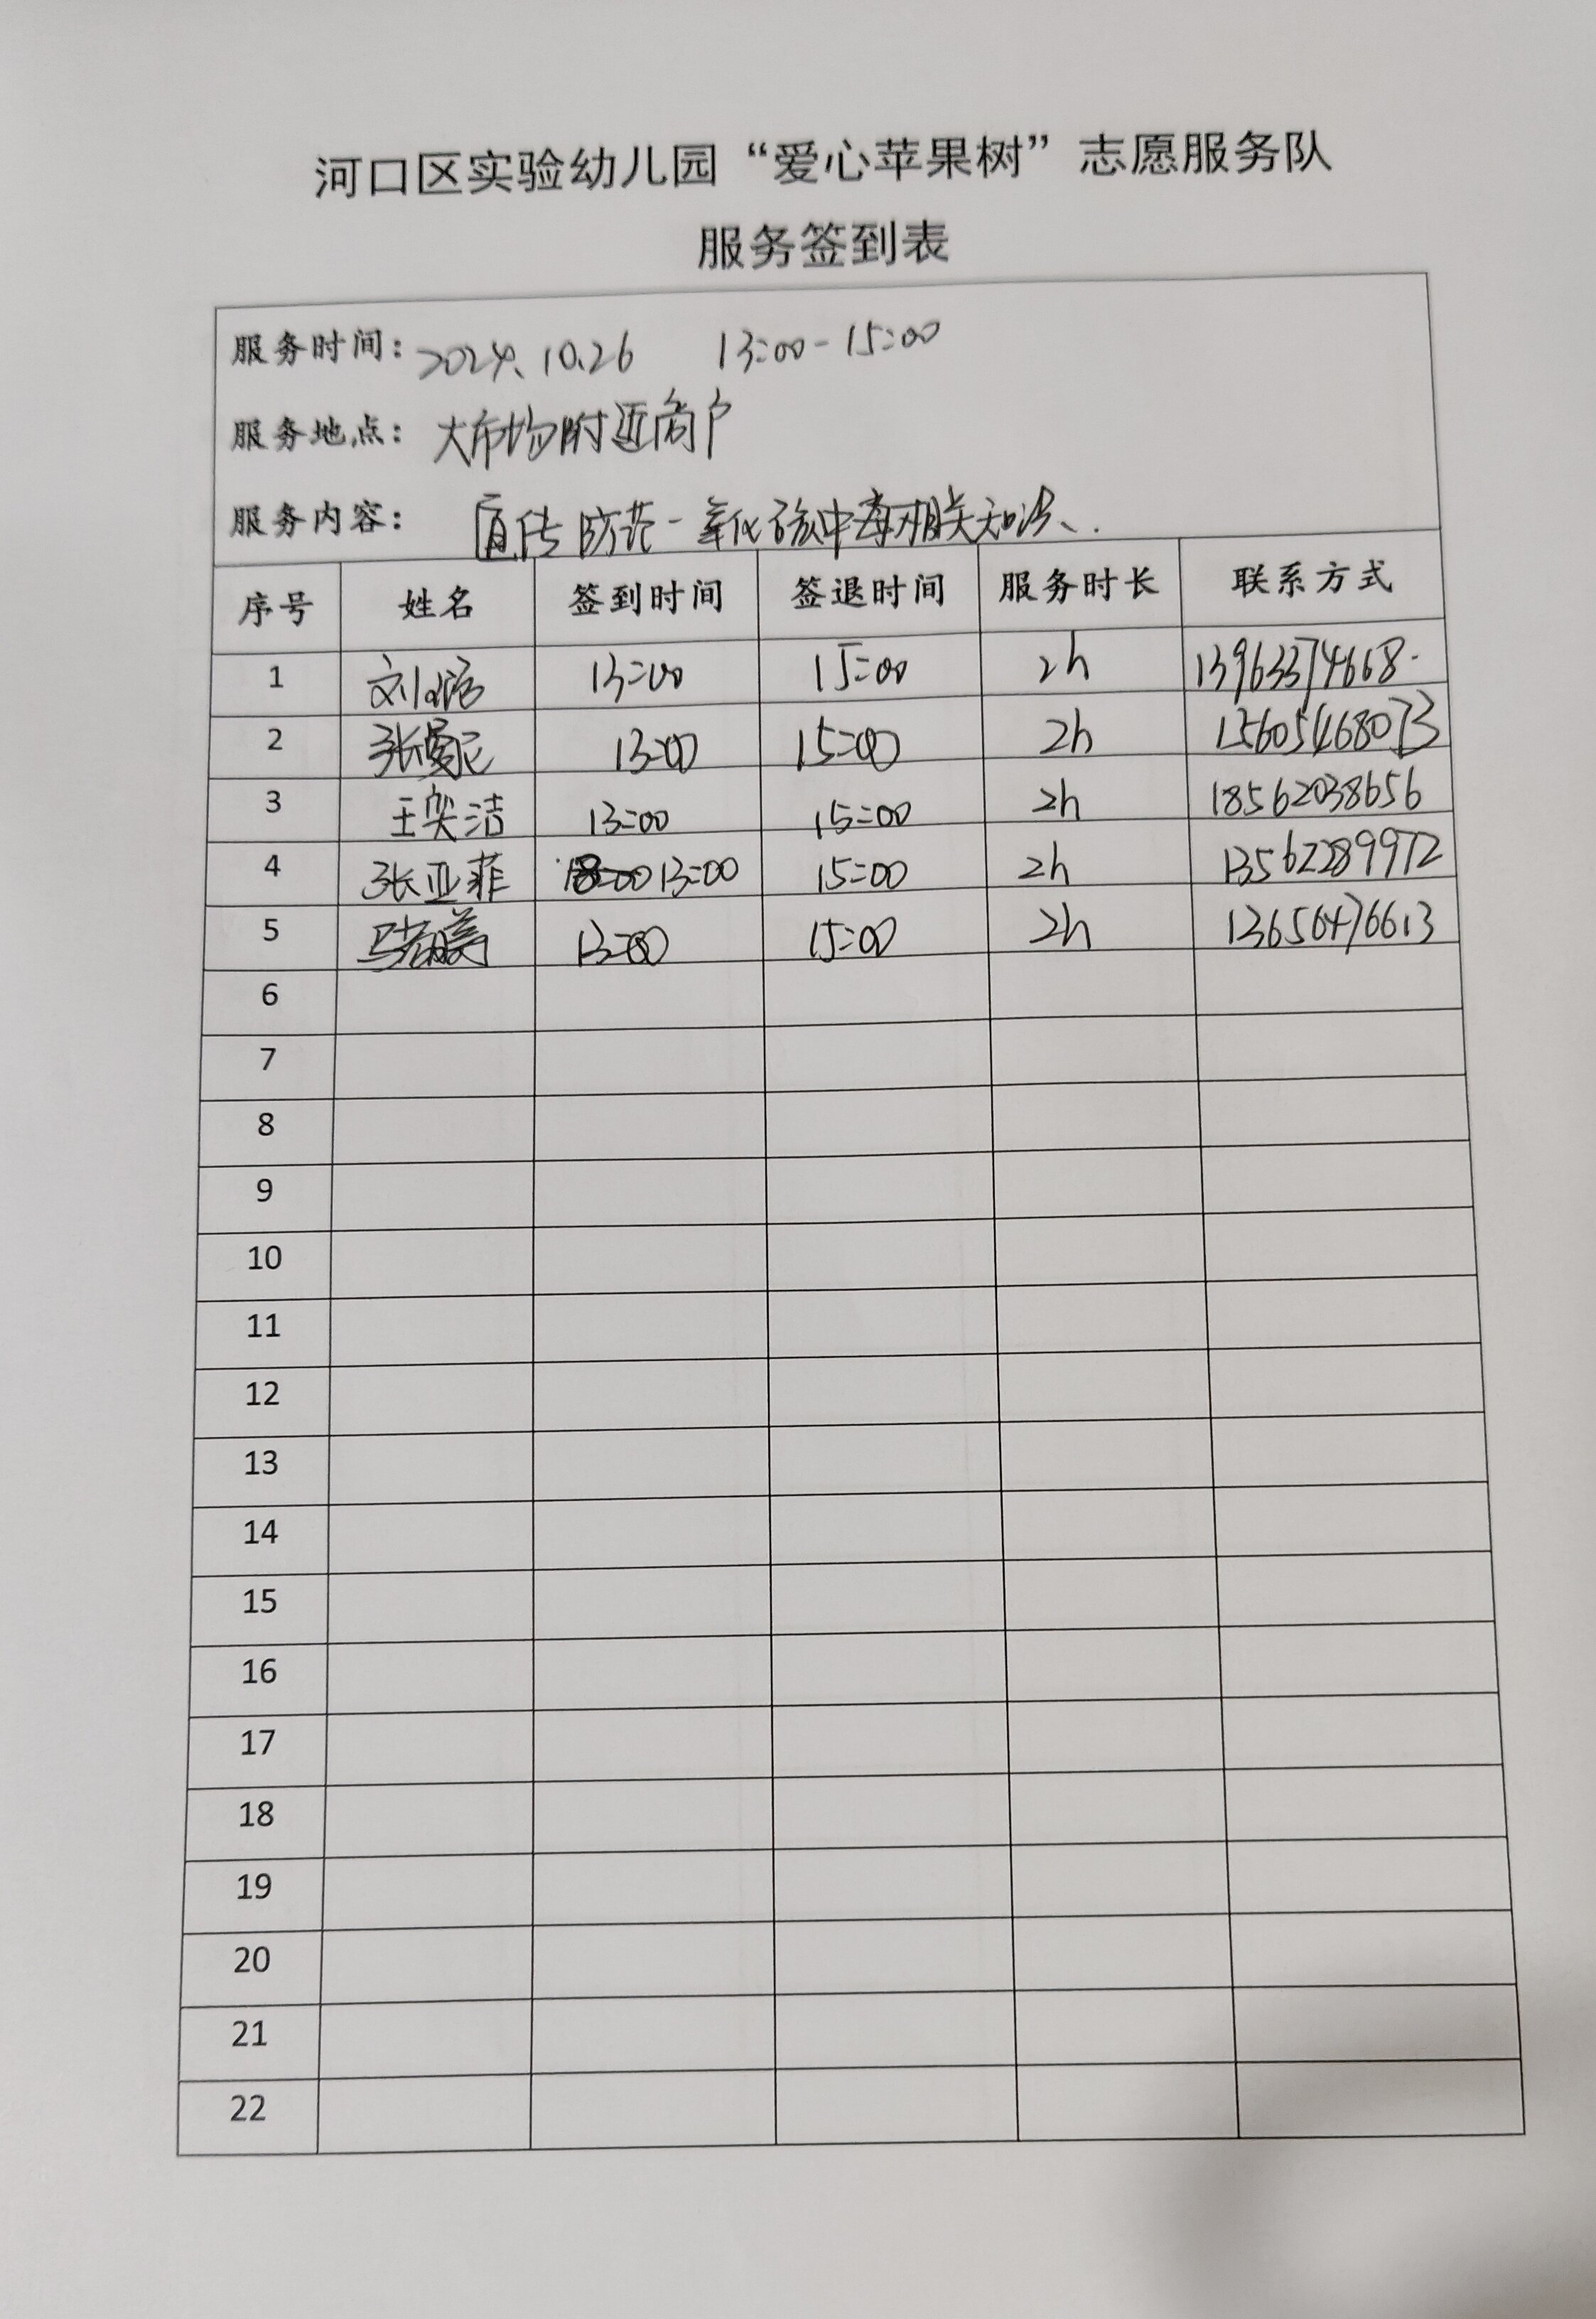 河口区实验幼儿园“爱心苹果树”志愿服务队
服务签到表
服务时间：2024.10.26 13:00-15:00
服务地点：大市场附近商户
服务内容：宣传防范一氧化碳中毒相关知识.
序号 姓名 签到时间 签退时间 服务时长 联系方式
1 刘 13:00 15:00 2h 13963374668
2 张曼妮 13:00 15:00 2h 15605468073
3 王奕洁 13:00 15:00 2h 18562038656
4 张亚菲 13:00 15:00 2h 13562289972
5 马 13:00 15:00 2h 13656476613
6
7
8
9
10
11
12
13
14
15
16
17
18
19
20
21
22